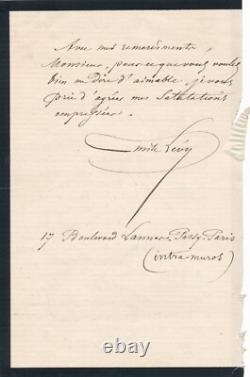 Avec mes remerciements
Monsieur, pour ce que vous voulez
bien me dire d'aimable, je vous
prie d'agréer mes Salutations
empressées.
Emile Lévy
17 Boulevard Lannes. Passy. Paris
(intra muros)